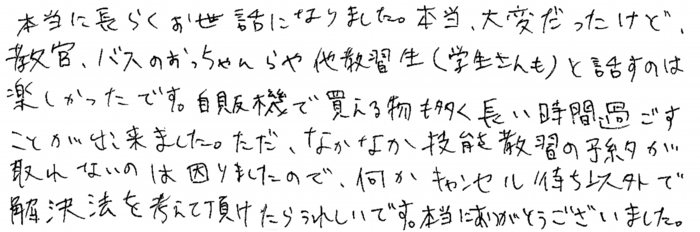 本当に長らくお世話になりました。本当、大変だったけど、
教官、バスのおっちゃんらや他教習生(学生さんも)と話すのは
楽しかったです。自販機で買える物も多く長い時間過ごす
ことが出来ました。ただ、なかなか技能教習の予約が
取れないのは困りましたので、何かキャンセル待ち以外で
解決法を考えて頂けたらうれしいです。本当にありがとうございました。